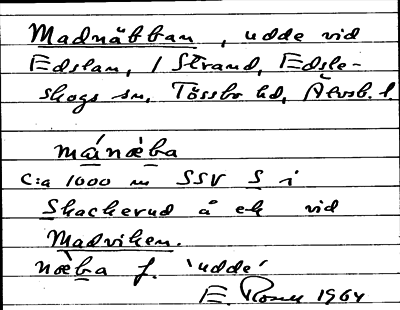 Madnäbban, udde vid
Edslan, 1 Strand, Edsle-
skogs sn, Tössbo hd, Älvsb. l.
mánæ̀ba
c:a 1000 m SSV S i
Skackerud å ek vid
Madviken.
næ̀ba f. 'udde'
E. 1964